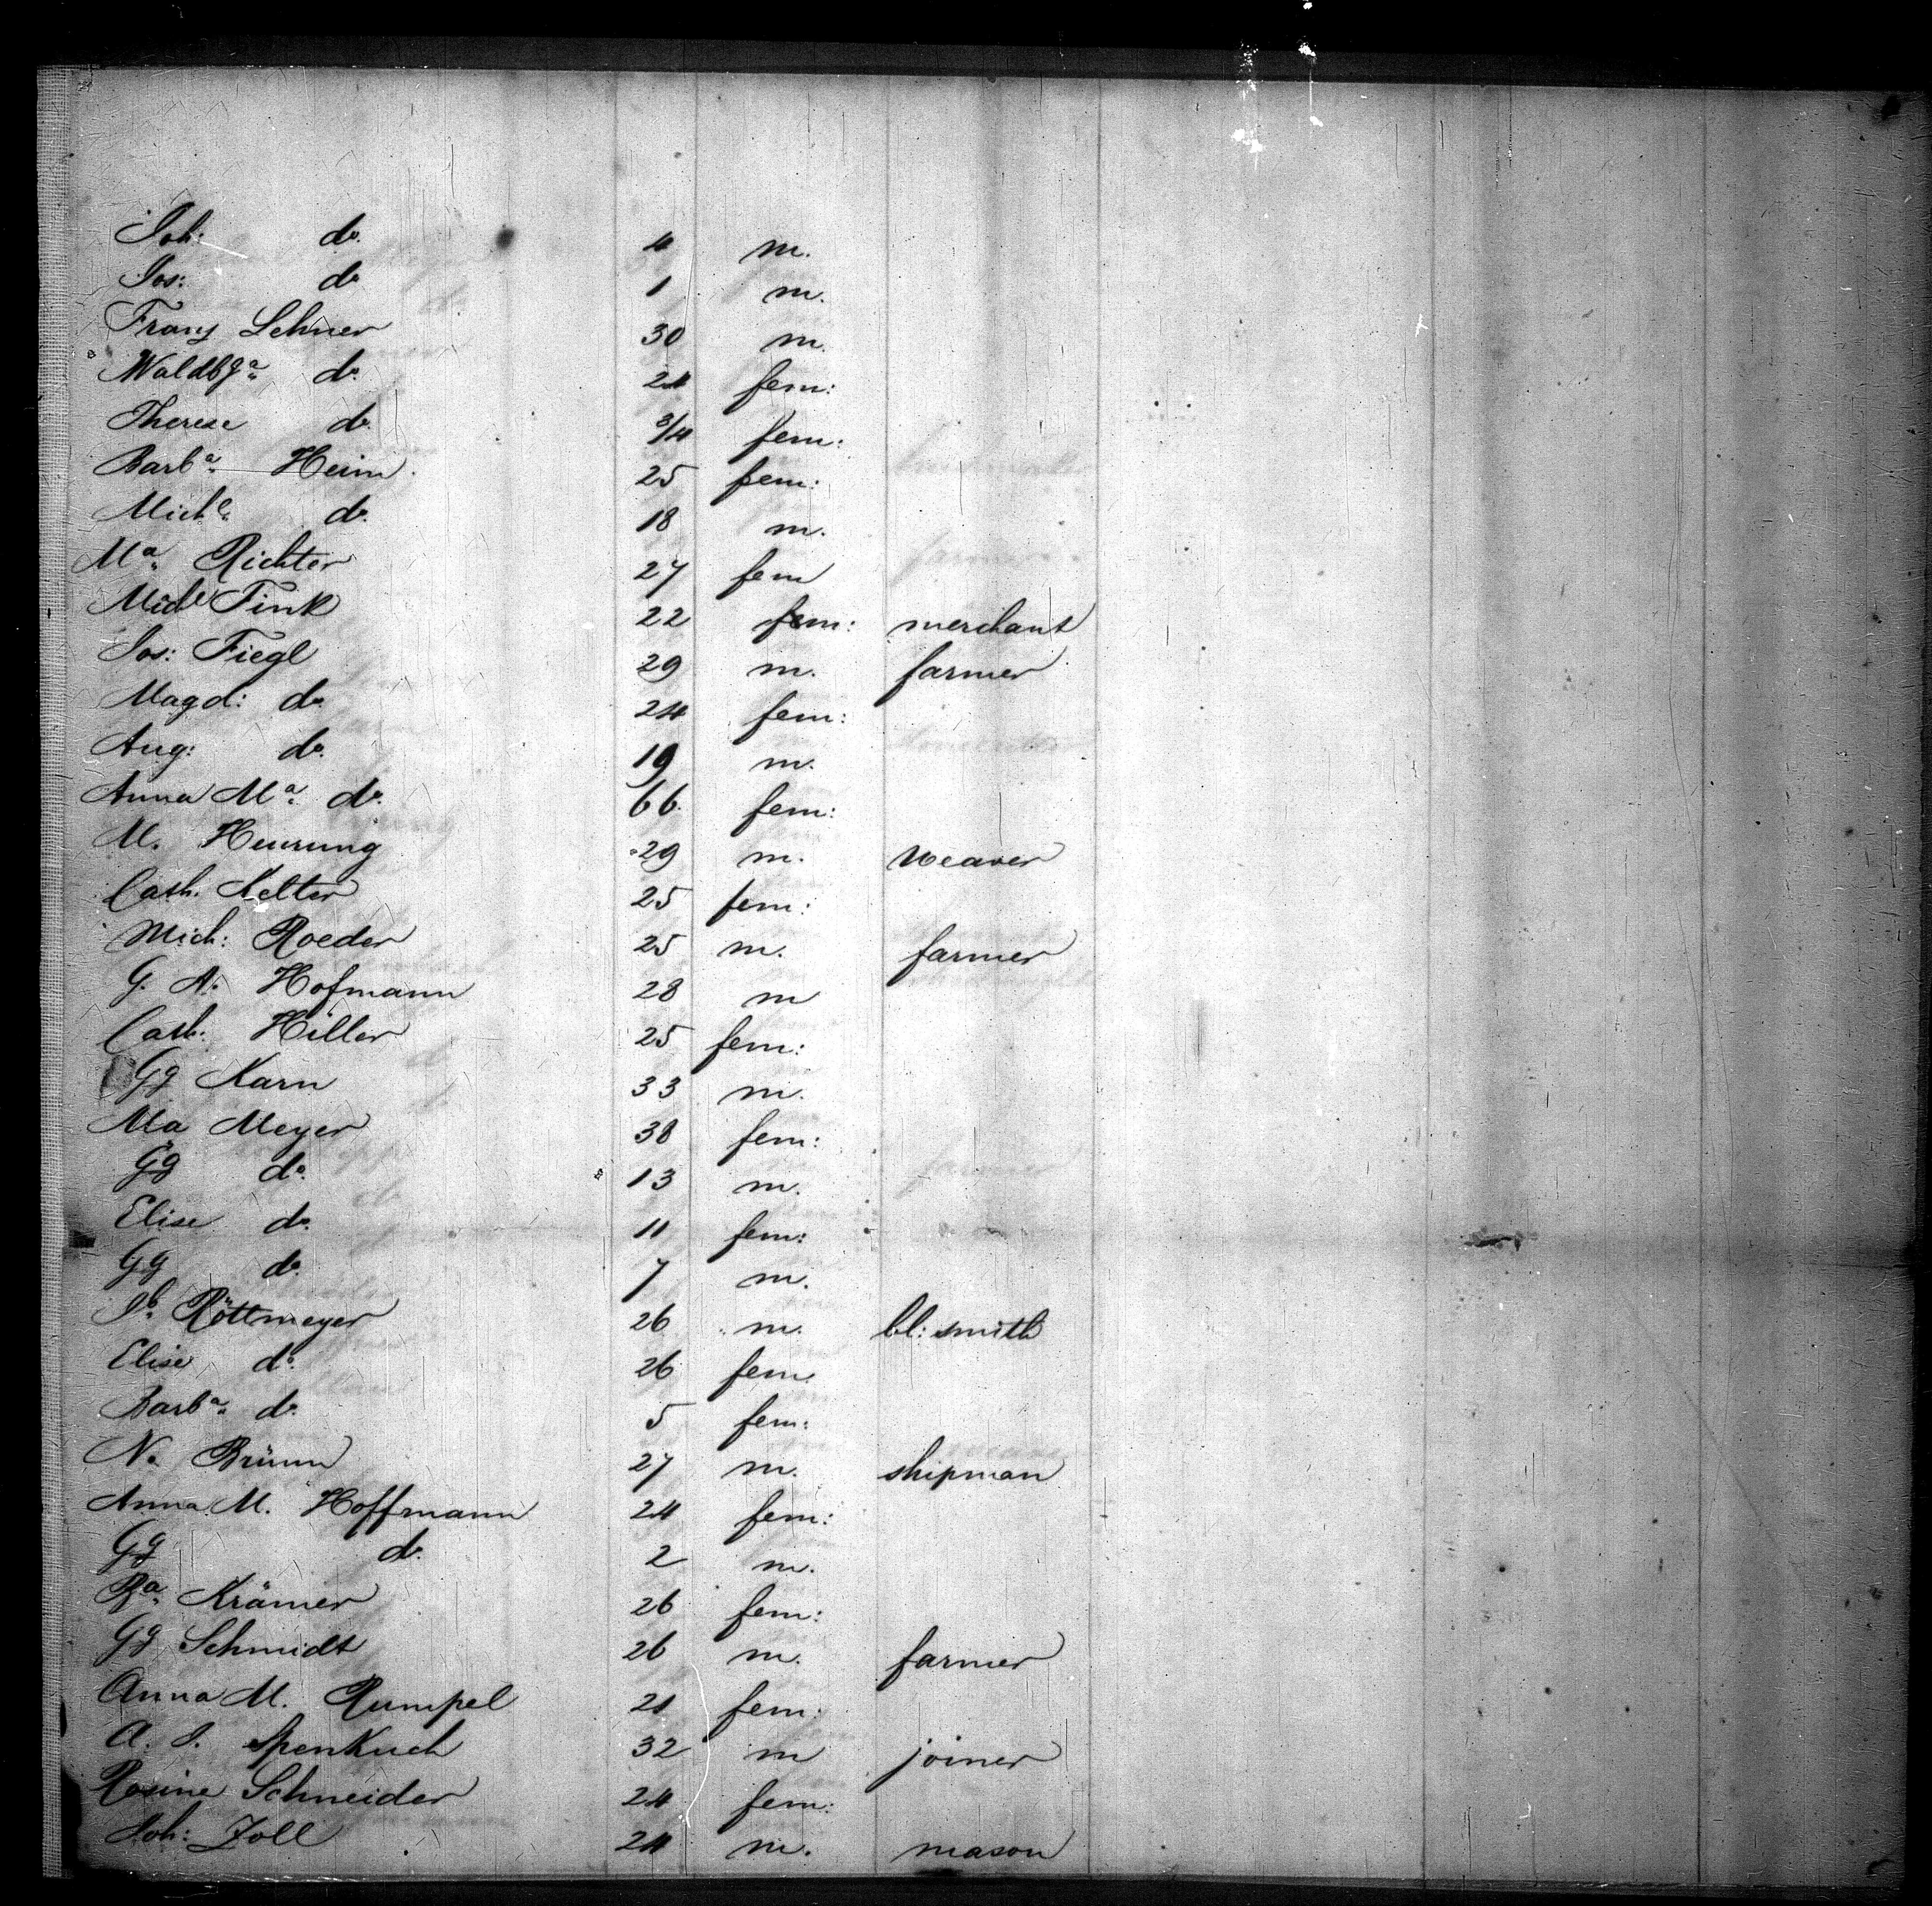 Joh: do. 4 m.
Jos: do 1 m.
Franz Lehner 30 m.
Waldbga. do. 24 fem:
Therese do. 3/4 fem:
Barba. Heim. 25 fem:
Michl. do. 18 m.
Ma. Richter 27 fem
Michl Fink 22 fem: merchant
Jos: Fiegl 29 m. farmer
Magd: do 24 fem:
Aug: do. 19 m.
Anna Ma. do. 66 fem:
M. Heurung 29 m. weaver
Cath. Kelter 25 fem:
Mich: Roeder 25 m. farmer
G. A. Hofmann 28 m
Cath: Hiller 25 fem:
Gg Karn 33 m.
Ma Meyer 38 fem:
Gg do. 13 m.
Elise do. 11 fem:
Gg do. 7 m.
Jb. Röttmeyer 26 m. bl: smith
Elise do. 26 fem.
Barba. do. 5 fem:
N. Brünn 27 m. shipman
Anna M. Hoffmann 24 fem:
Gg do. 2 m.
Ba. Krämer 26 fem:
Gg Schmidt 26 m. farmer
Anna M. Rumpel 21 fem:
A. J. Spenkuch 32 m joiner
Rosine Schneider 24 fem:
Joh: Zoll 24 m. mason